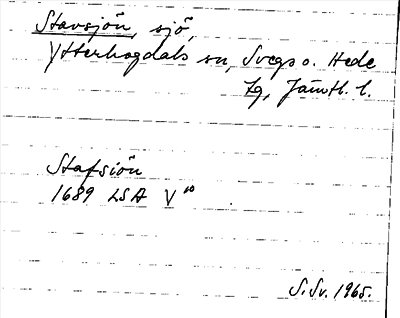 Stavsjön, sjö,
Ytterhogdals sn, Svegs o. Hede
tg, Jämtl. l.
Stafsiön
1689 LSA V¹⁰
S.Sv. 1965.